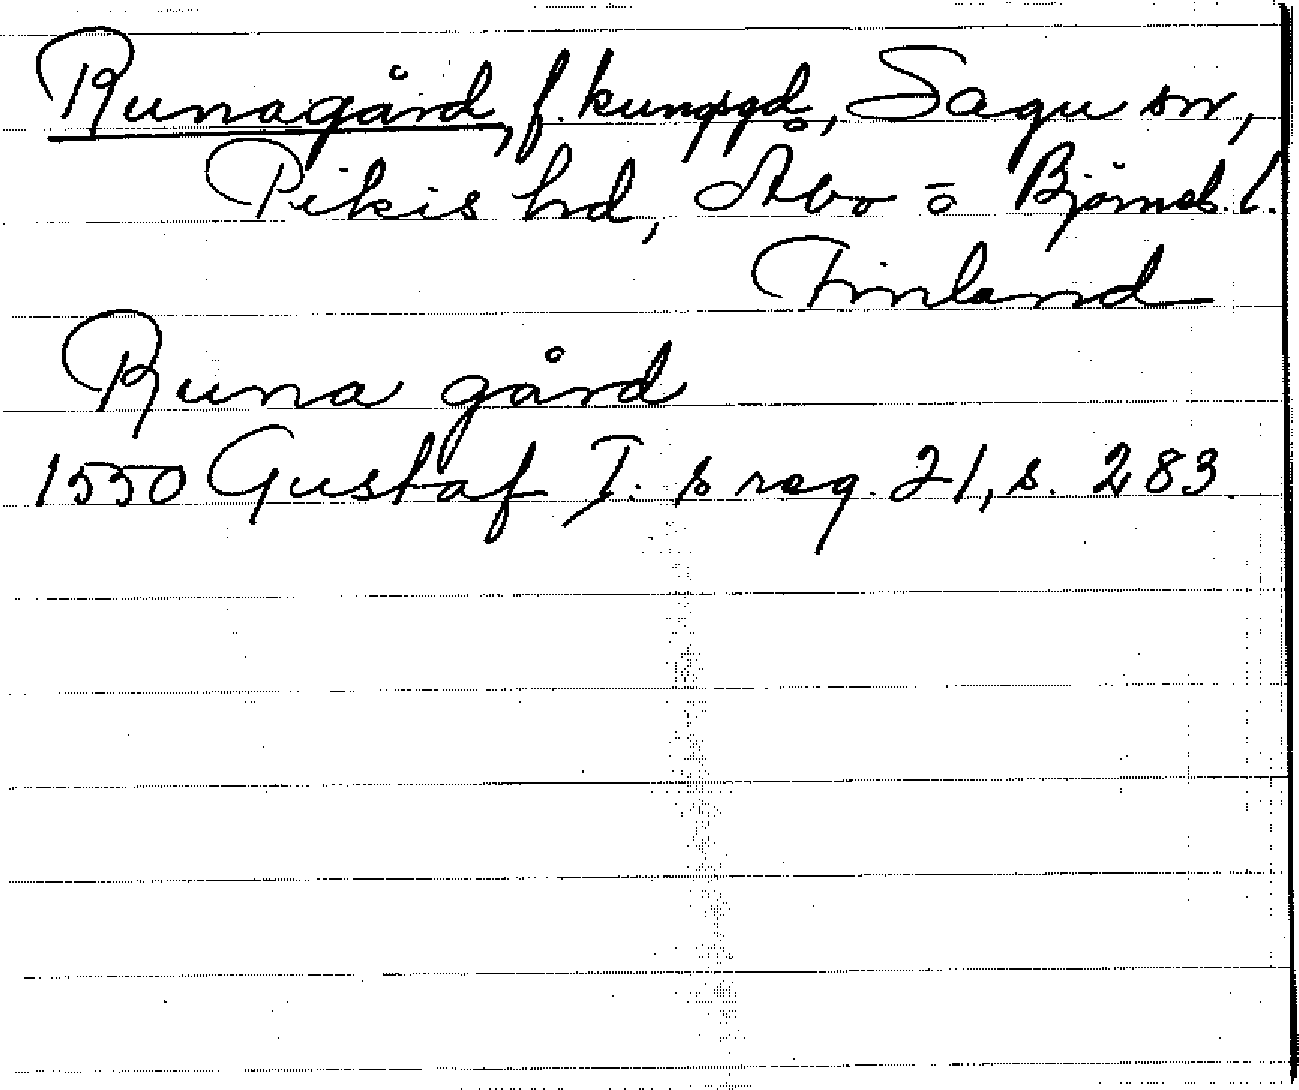 Runagård, f. kungsgd, Sagu sn,
Pikis hd, Åbo o Björneb. l.
Finland
Runa gård
1550 Gustaf I:s reg. 21, s. 283.